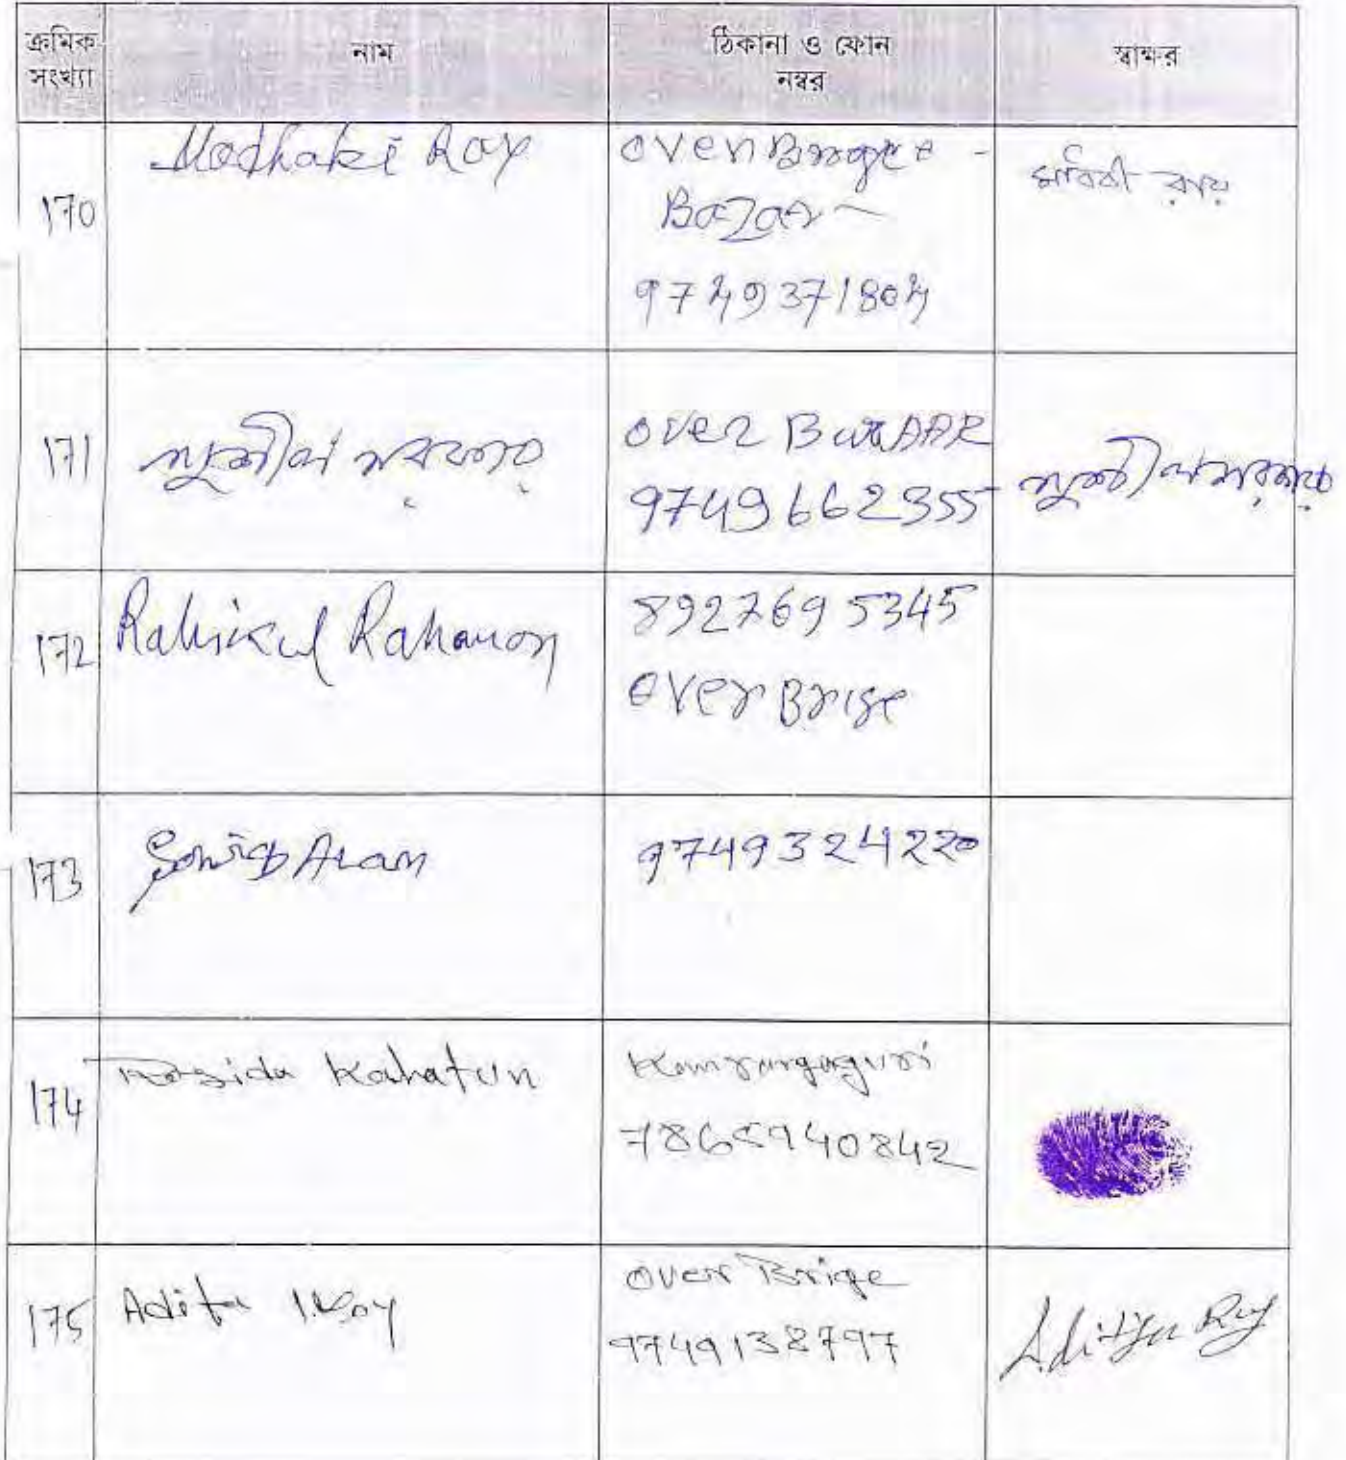 ক্রমিক সংখ্যা নাম ঠিকানা ও ফোন নম্বর স্বাক্ষর
170 Madhabi Roy
Bazar
9749371804
রায়
171 সুশীল সরকার Over
9749662355 সুশীল সরকার
172 Rahman 8927695345
Over Brige
173 9749324220
174 Kahatun
7865940842
175 Adita Roy Over Brige
9749138797 Aditya Roy